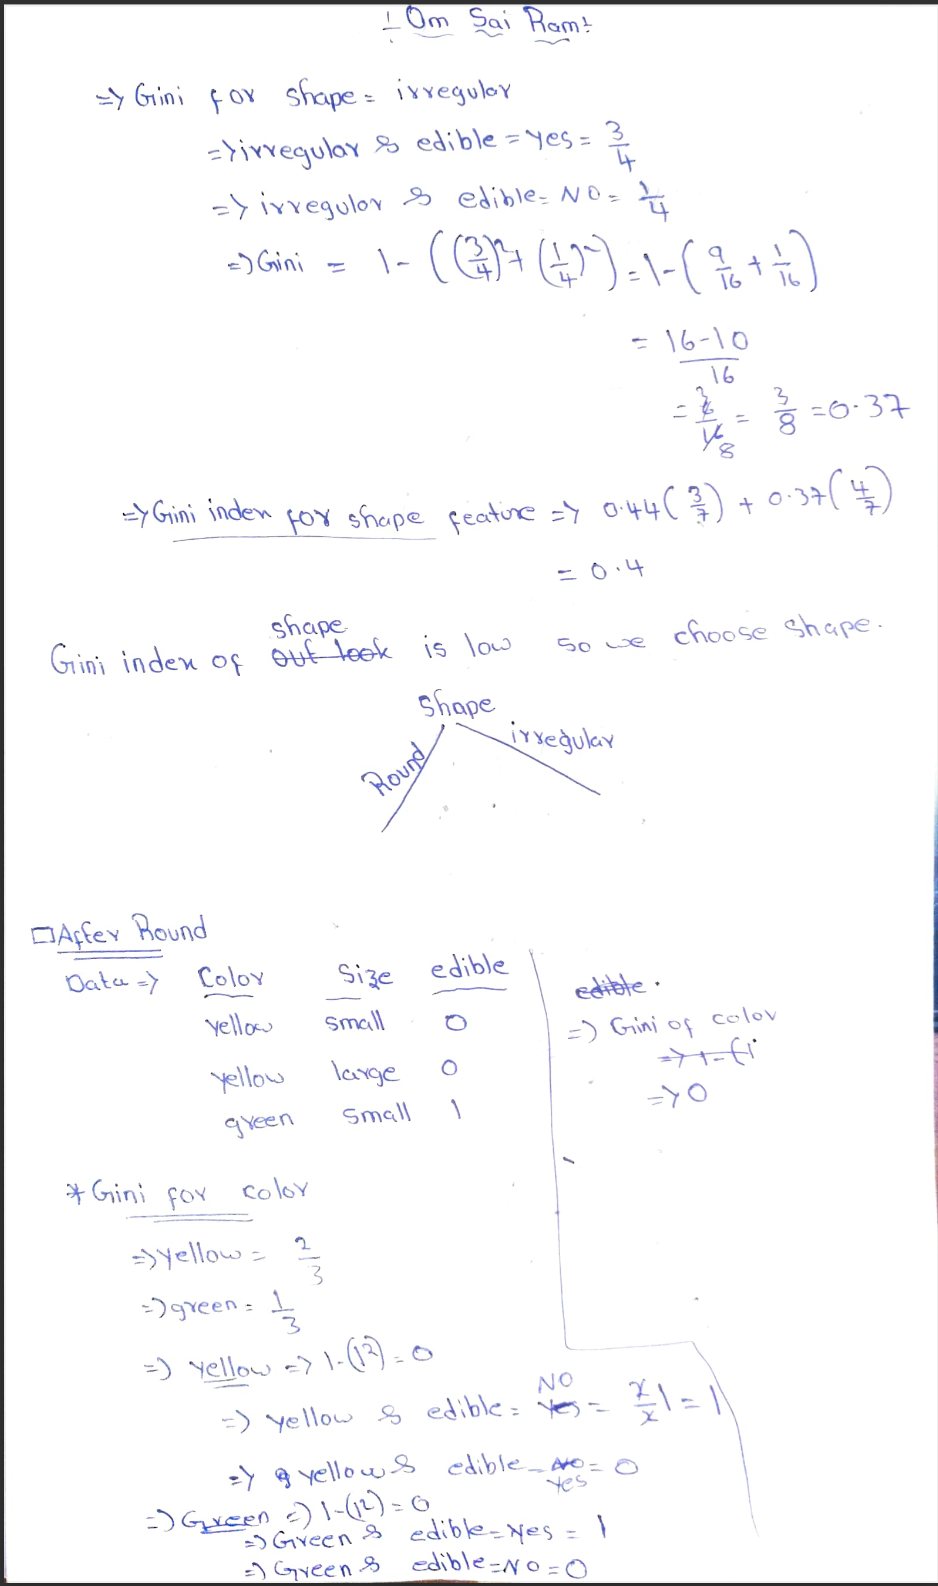 ! Om Sai Ram !
=> Gini for shape = irregular
=> irregular & edible = yes = 3/4
=> irregular & edible = NO = 1/4
=> Gini = 1 - ((3/4)² + (1/4)²) = 1 - (9/16 + 1/16)
= 16-10/16
= 6/16 = 3/8 = 0.37
=> Gini index for shape feature => 0.44(3/7) + 0.37(4/7)
= 0.4
shape
Gini index of out look is low so we choose shape.
Shape
Round irregular
After Round
Data => Color Size edible
yellow small 0
yellow large 0
green small 1
edible.
=> Gini of color
=> 1-(1
=> 0
* Gini for color
=> yellow = 2/3
=> green = 1/3
=> yellow => 1-(1²) = 0
NO
=> yellow & edible = yes = 1 = 1
=> yellow & edible = NO = 0
yes
=> Green => 1-(1²) = 0
=> Green & edible = yes = 1
=> Green & edible = NO = 0